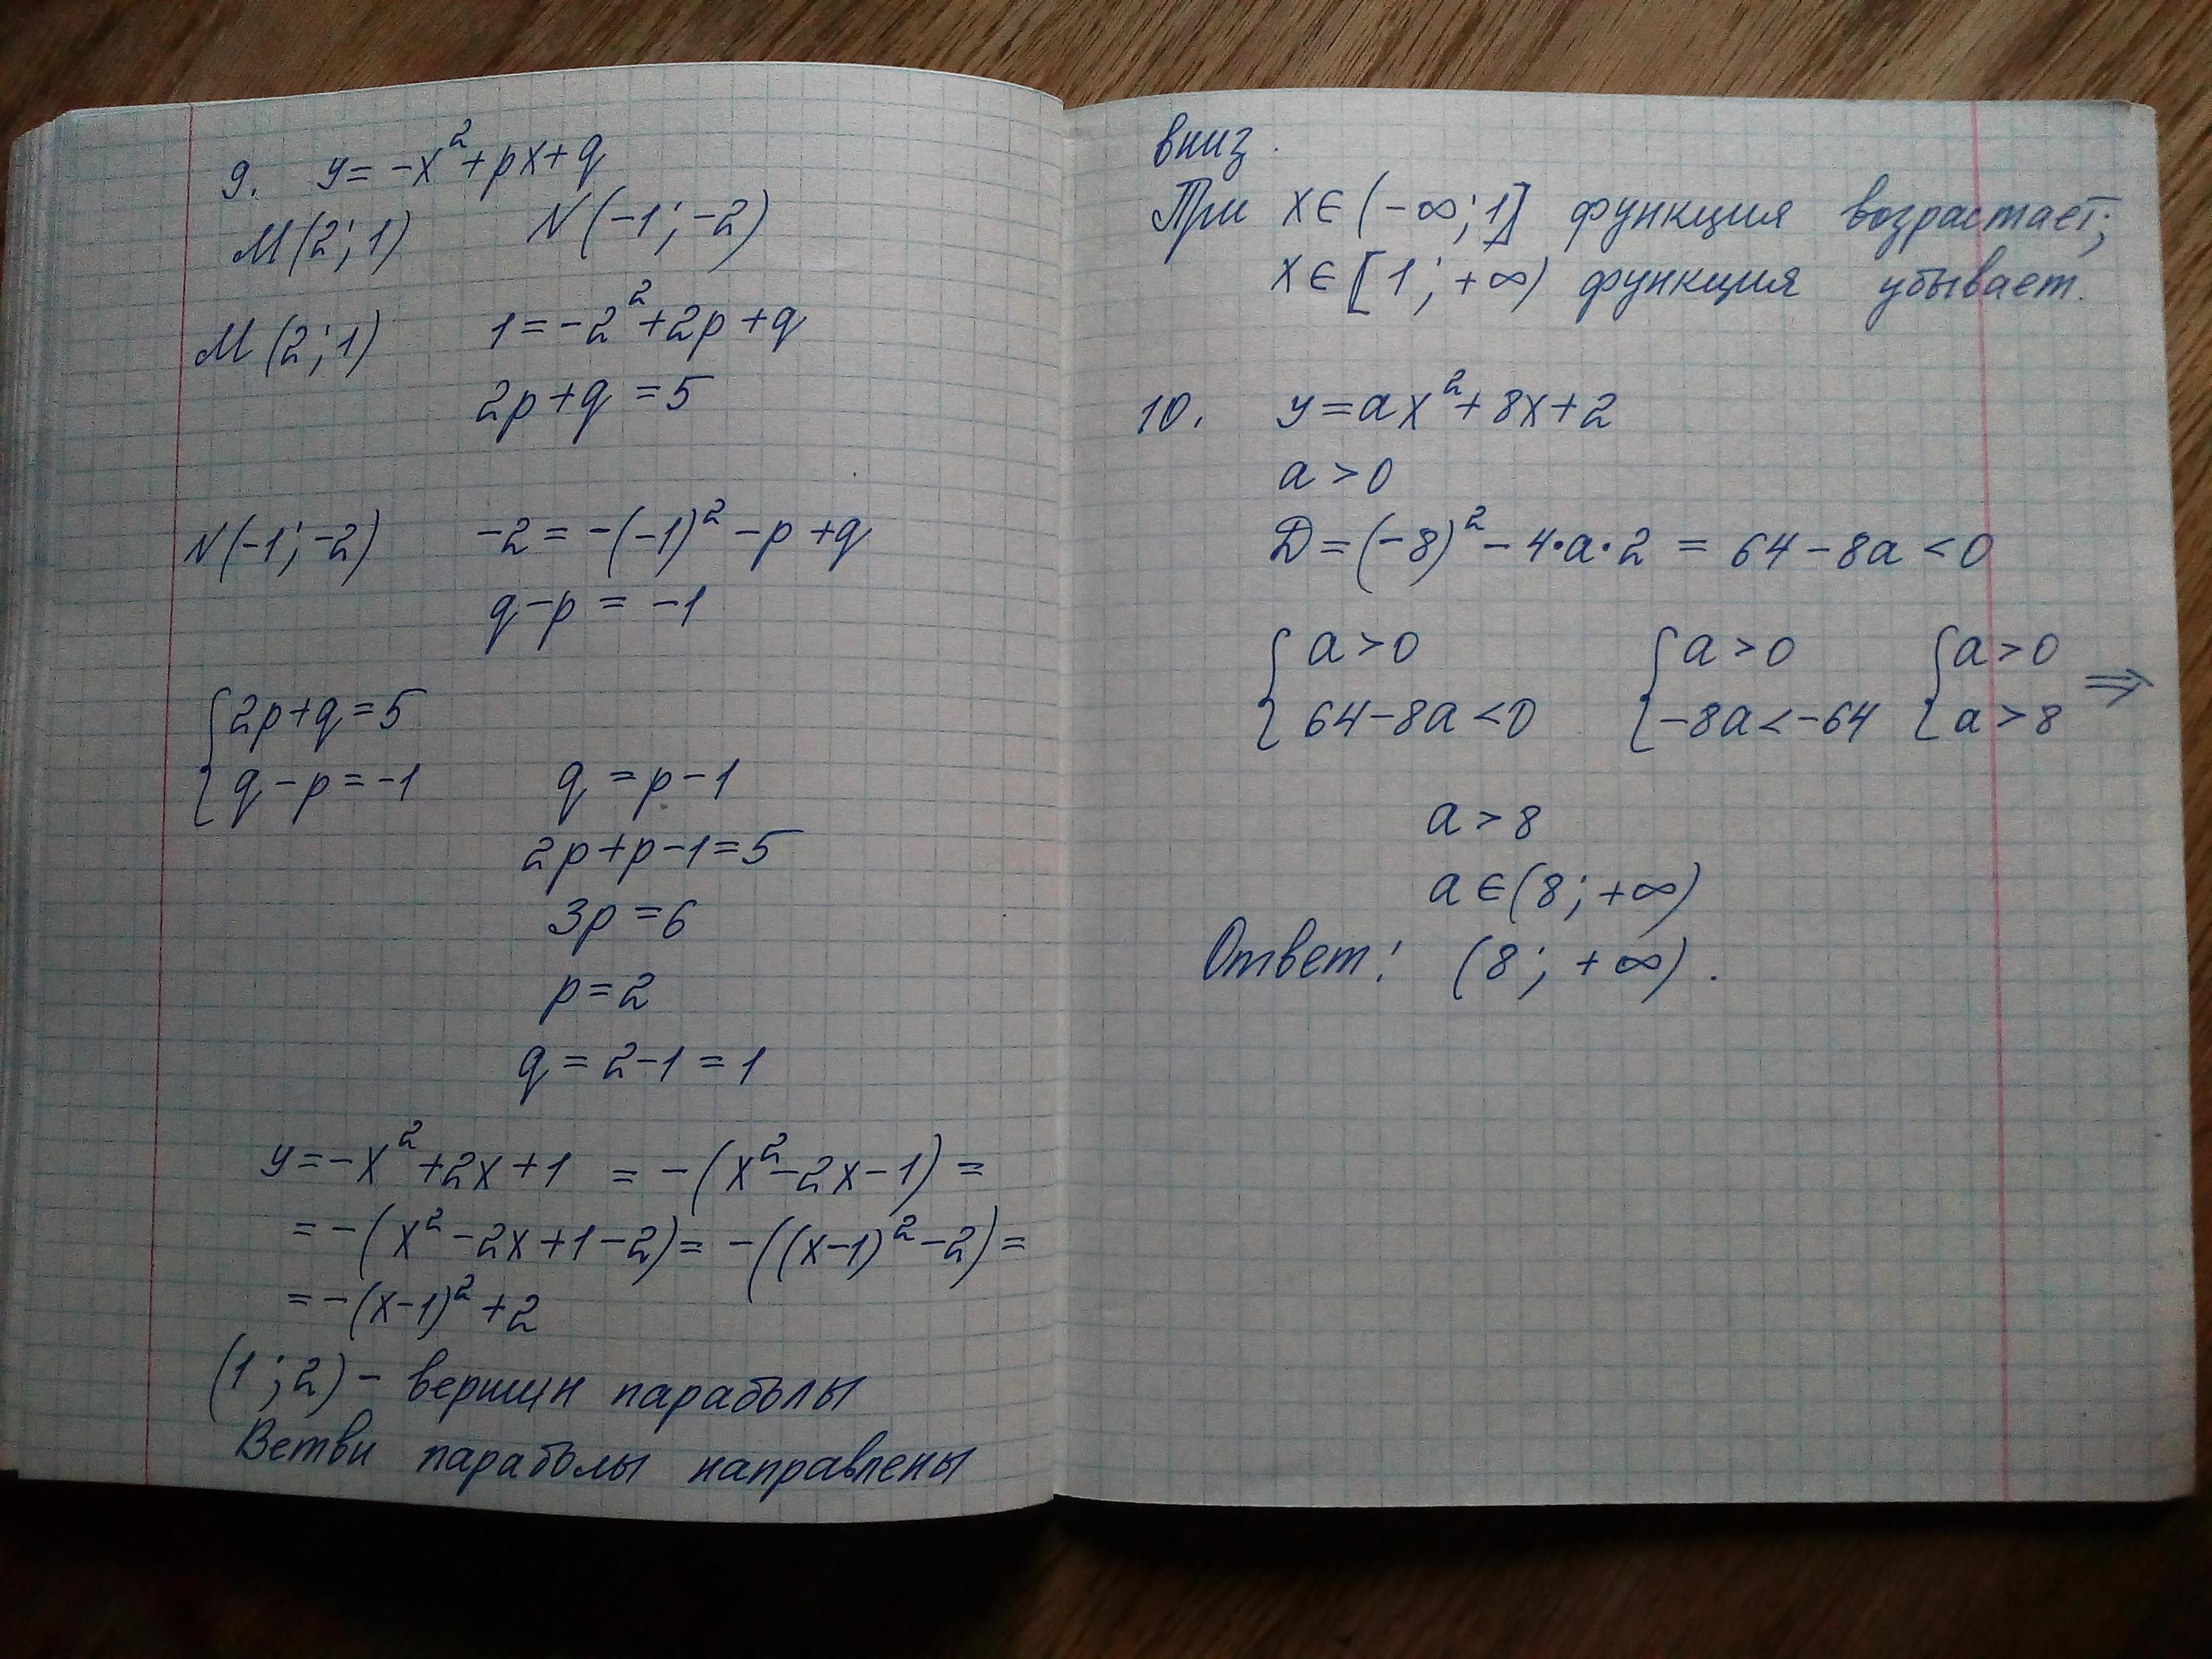 9. y = -x² + px + q
M(2; 1) N(-1; -2)
M(2; 1) 1 = -2² + 2p + q
2p + q = 5
N(-1; -2) -2 = -(-1)² - p + q
q - p = -1
{ 2p + q = 5
{ q - p = -1 q = p - 1
2p + p - 1 = 5
3p = 6
p = 2
q = 2 - 1 = 1
y = -x² + 2x + 1 = -(x² - 2x - 1) =
= -(x² - 2x + 1 - 2) = -((x - 1)² - 2) =
= -(x - 1)² + 2
(1; 2) - вершин параболы
Ветви параболы направлены
вниз.
При x ∈ (-∞; 1] функция возрастает;
x ∈ [1; +∞) функция убывает.
10. y = ax² + 8x + 2
a > 0
D = (-8)² - 4·a·2 = 64 - 8a < 0
{ a > 0 { a > 0 { a > 0 ⇒
{ 64 - 8a < 0 { -8a < -64 { a > 8
a > 8
a ∈ (8; +∞)
Ответ: (8; +∞).